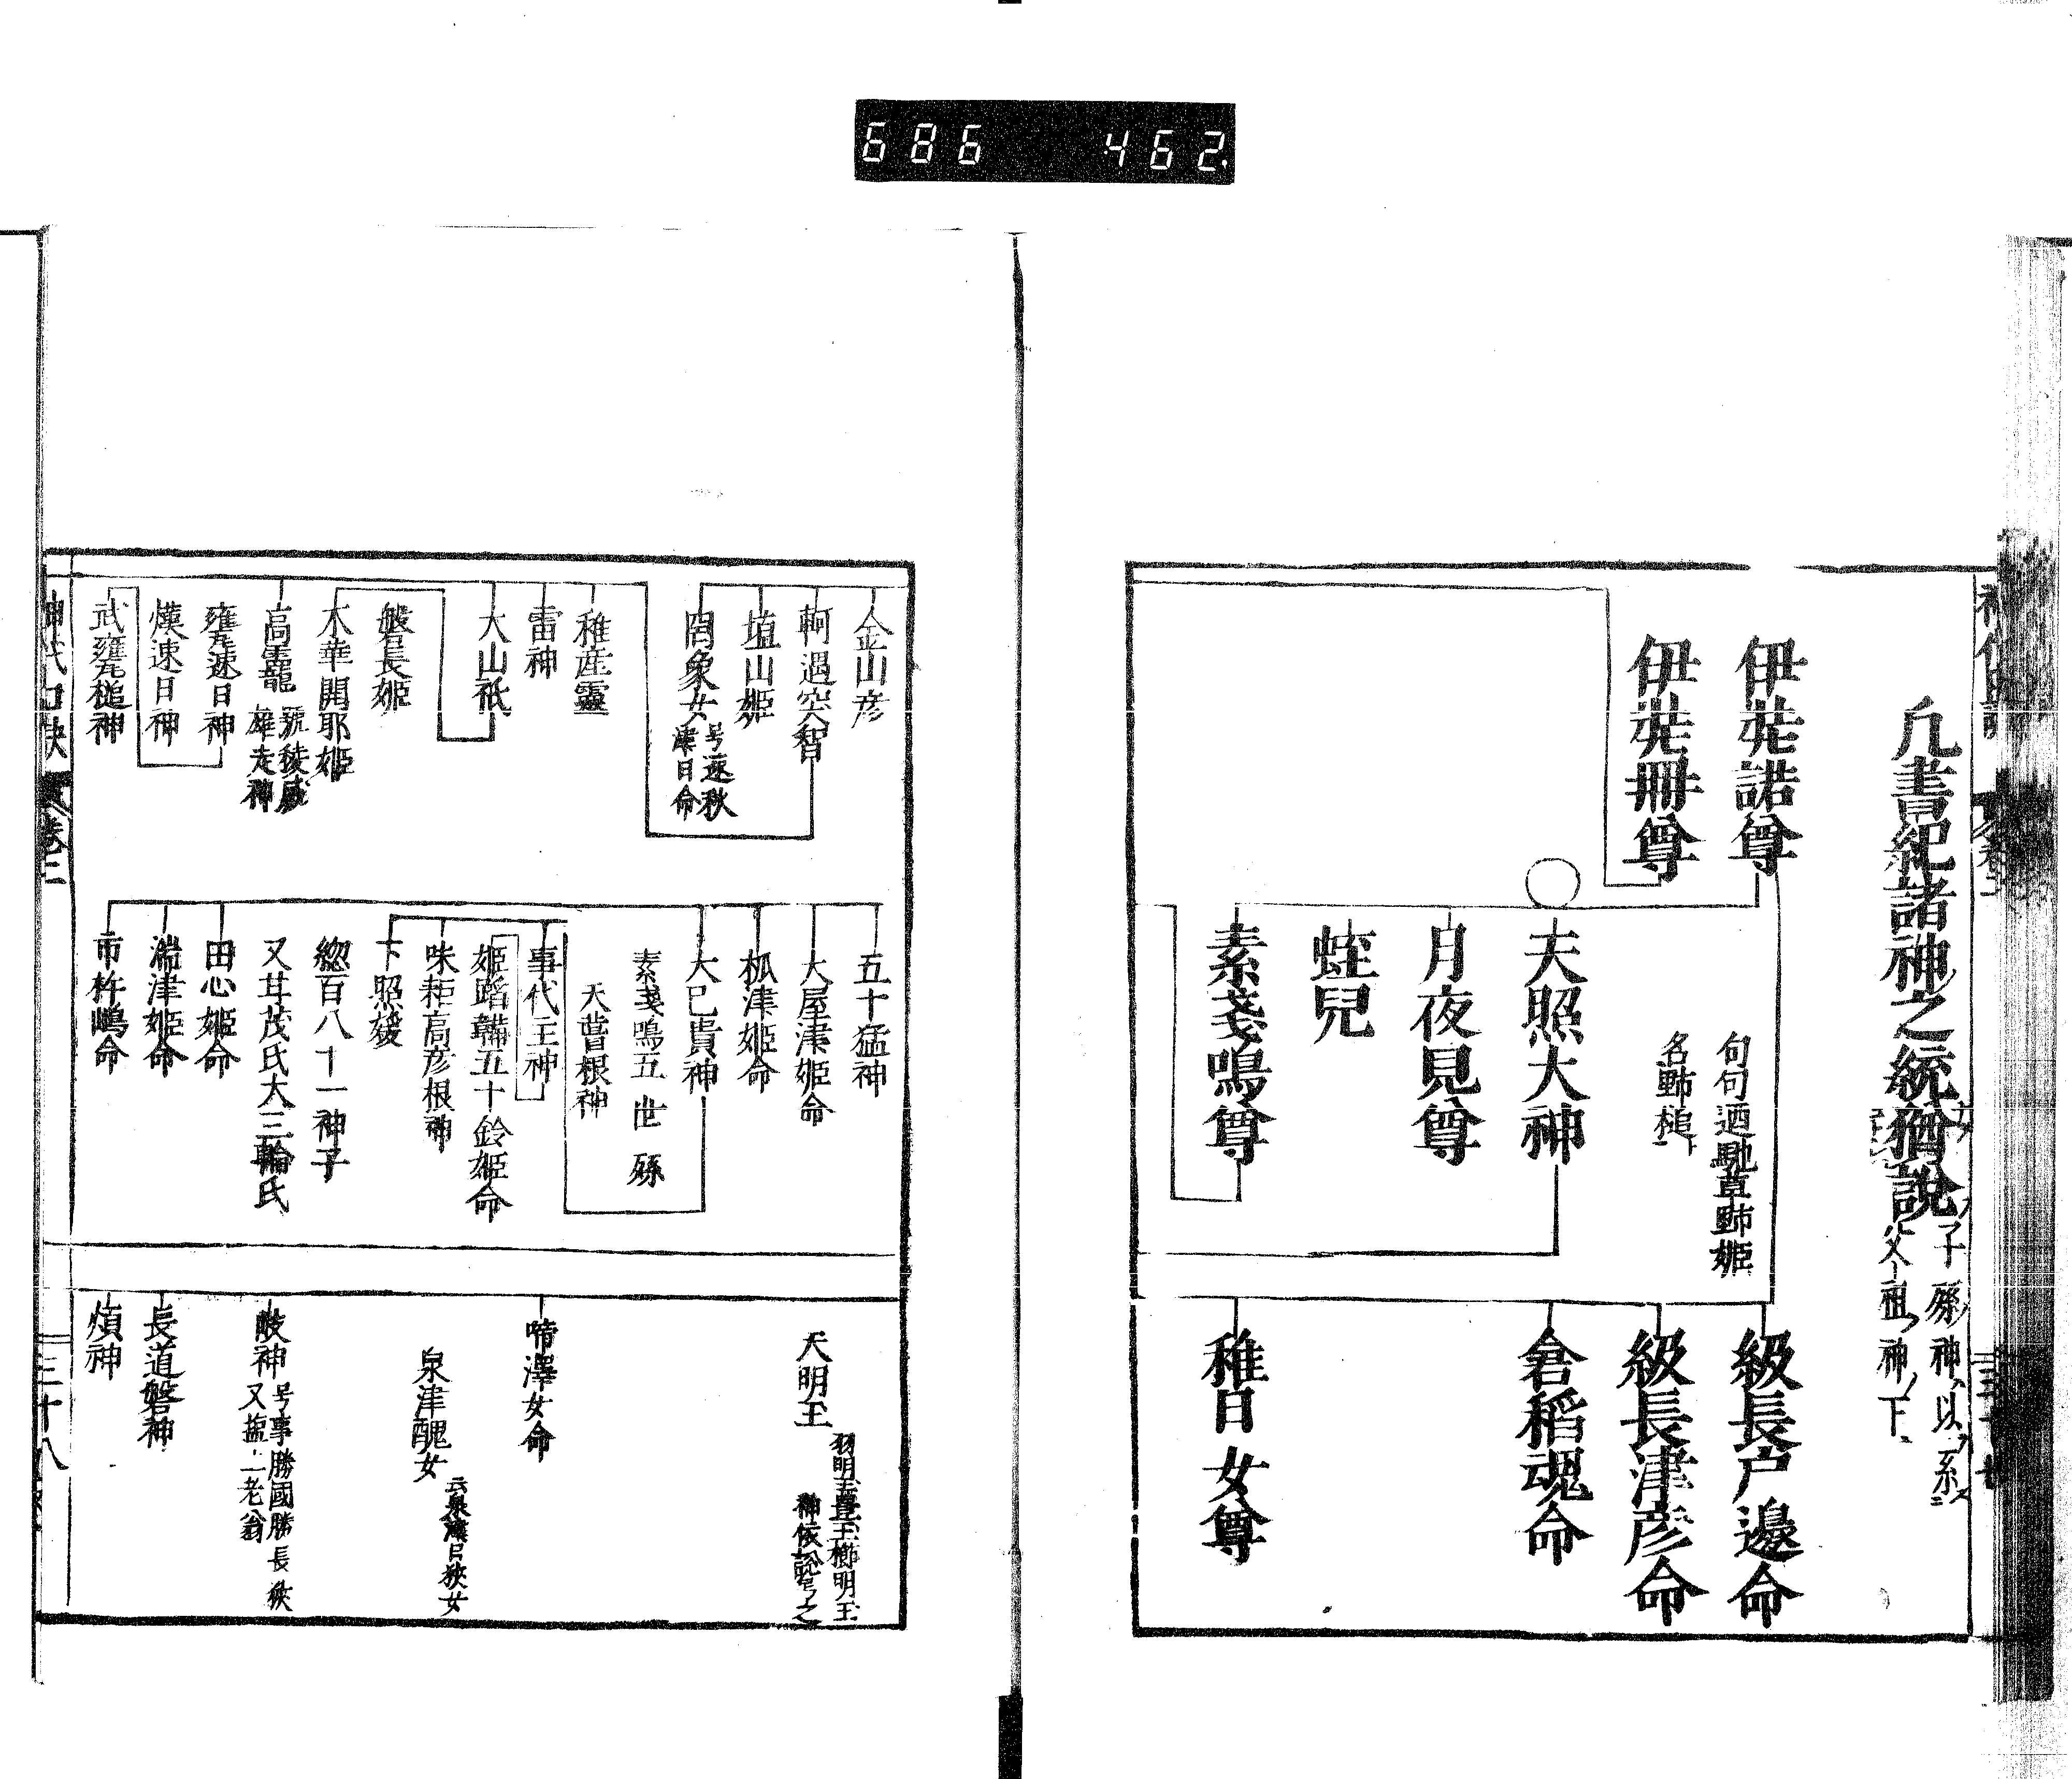 686 462
凡書紀諸神之統猶說
子孫神以系
父祖神下
伊弉諾尊
伊弉冊尊
句句廼馳草野姫
名野槌
天照大神
月夜見尊
蛭兒
素戔鳴尊
級長戸邊命
級長津彦命
倉稻魂命
稚日女尊
金山彦
軻遇突智
埴山姫
罔象女
号速秋
津日命
稚産靈
雷神
大山祇
磐長姫
木華開耶姫
高龗
號稜威
雄走神
甕速日神
熯速日神
武甕槌神
五十猛神
大屋津姫命
柧津姫命
大己貴神
素戔鳴五世孫
天葺根神
事代主神
姫蹈鞴五十鈴姫命
味耜高彦根神
下照媛
總百八十一神子
又甘茂氏大三輪氏
田心姫命
湍津姫命
市杵嶋命
天明玉
羽明玉豊玉櫛明玉
神依說号之
啼澤女命
泉津醜女
云泉津日狹女
岐神
号事勝國勝長狹
又塩土老翁
長道磐神
煩神
神代口訣
卷二
三十八